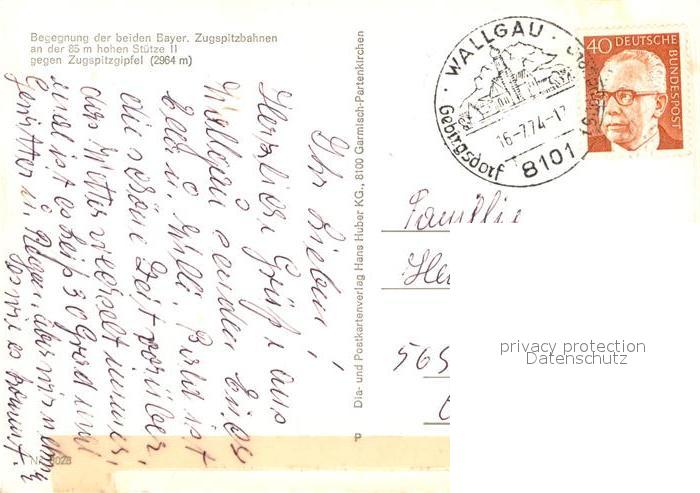 Begegnung der beiden Bayer. Zugspitzbahnen
an der 85 m hohen Stütze II
gegen Zugspitzgipfel (2964 m)
Ihr Lieben!
Herzliche Grüße aus
Wallgau senden Euch
u. Willi. Bald ist
die schöne Zeit vorüber
das Wetter wechselt immer,
mal ist es heiß 30 Grad und
Gewitter u. Regen, aber wir nehmen
wie es kommt.
Dia- und Postkartenverlag Hans Huber KG., 8100 Garmisch-Partenkirchen
P
WALLGAU
Gebirgsdorf
16-7.74-1
8101
40 DEUTSCHE
BUNDESPOST
Familie
He
565
privacy protection
Datenschutz